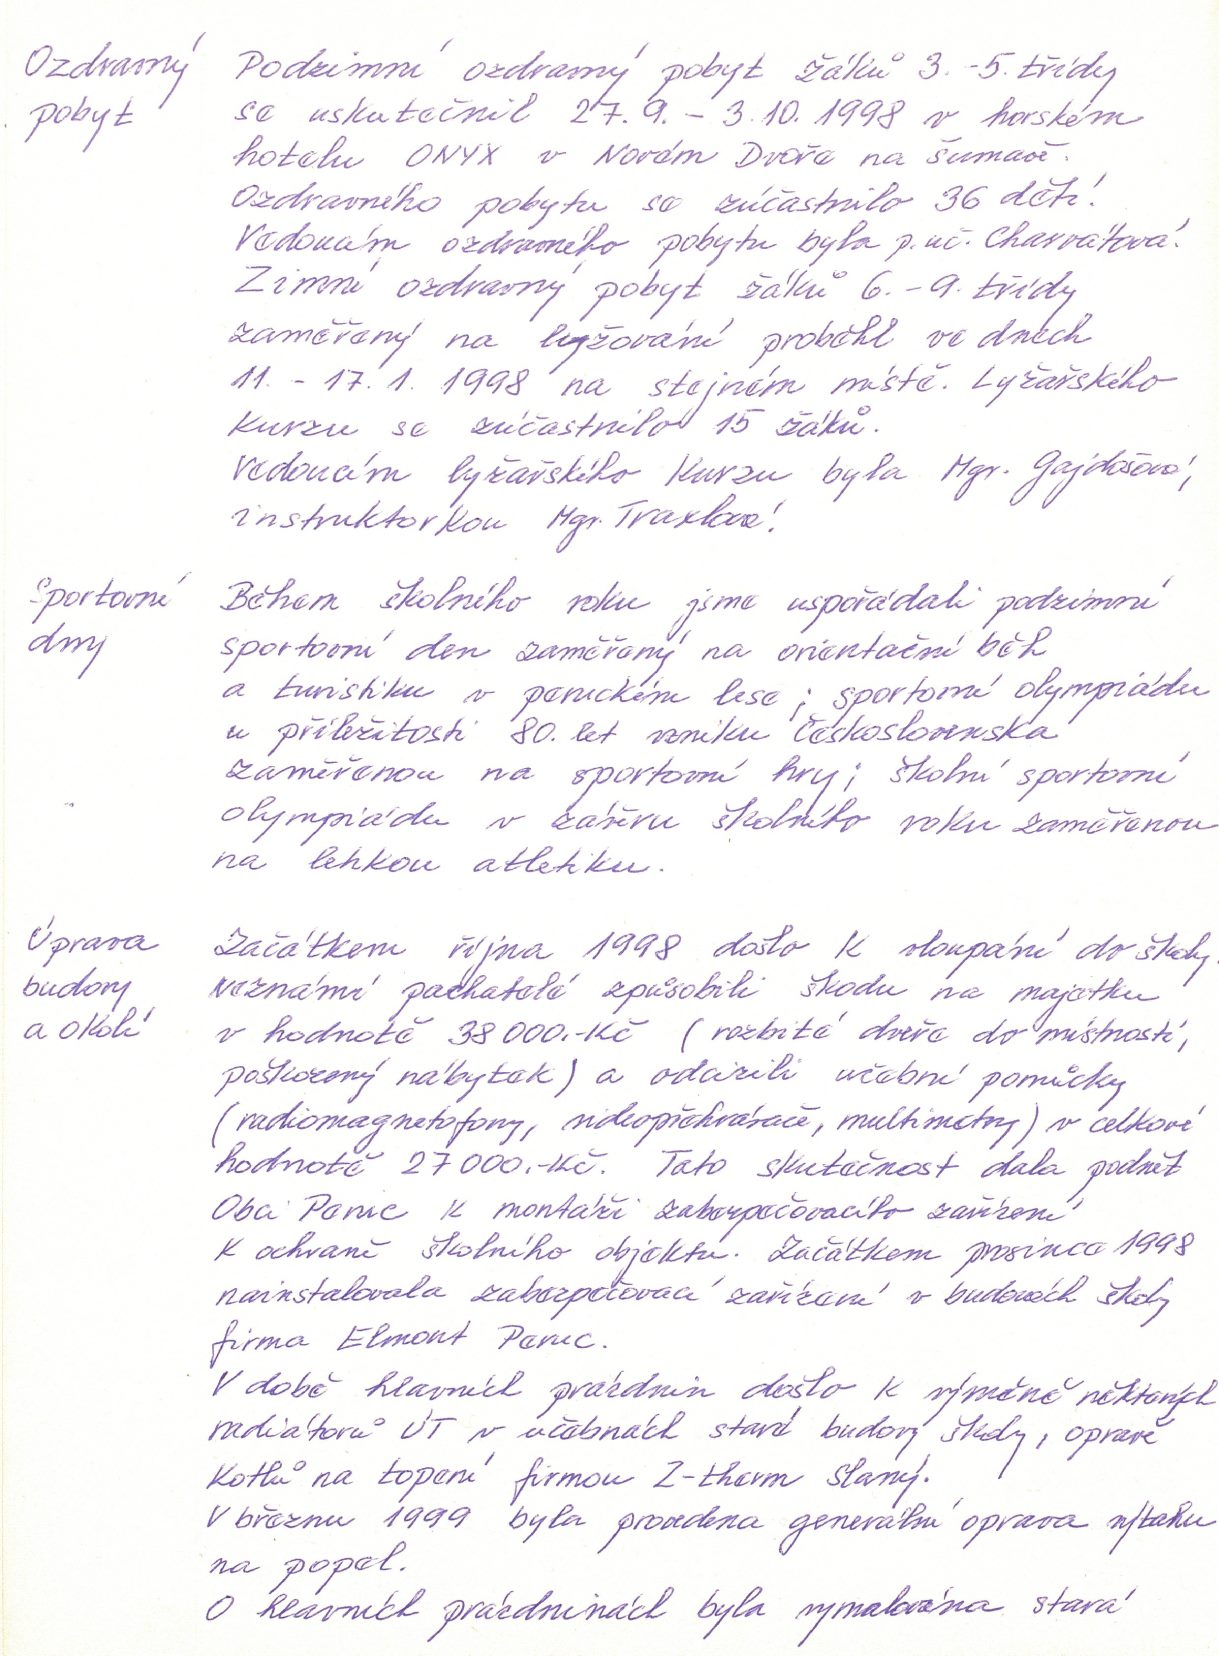 Ozdravný
pobyt
Podzimní ozdravný pobyt žáků 3.-5. třídy
se uskutečnil 27.9. - 3.10. 1998 v horském
hotelu ONYX v Novém Dvoře na Šumavě.
Ozdravného pobytu se zúčastnilo 36 dětí.
Vedoucím ozdravného pobytu byla p.uč. Charvátová.
Zimní ozdravný pobyt žáků 6.-9. třídy
zaměřený na lyžování proběhl ve dnech
11. - 17. 1. 1998 na stejném místě. Lyžařského
kurzu se zúčastnilo 15 žáků.
Vedoucím lyžařského kurzu byla Mgr. Gajdošová,
instruktorkou Mgr. Traxlová.
Sportovní
dny
Během školního roku jsme uspořádali podzimní
sportovní den zaměřený na orientační běh
a turistiku v peruckém lese; sportovní olympiádu
u příležitosti 80. let vzniku Československa
zaměřenou na sportovní hry; školní sportovní
olympiádu v závěru školního roku zaměřenou
na lehkou atletiku.
Úprava
budovy
a okolí
Začátkem října 1998 došlo k vloupání do školy.
Neznámí pachatelé způsobili škodu na majetku
v hodnotě 38 000.-Kč (rozbité dveře do místností,
poškozený nábytek) a odcizili učební pomůcky
(radiomagnetofony, videopřehrávače, multimetry) v celkové
hodnotě 27 000.-Kč. Tato skutečnost dala podnět
Obci Peruc k montáži zabezpečovacího zařízení
k ochraně školního objektu. Začátkem prosince 1998
nainstalovala zabezpečovací zařízení v budovách školy
firma Elmont Peruc.
V době hlavních prázdnin došlo k výměně některých
radiátorů ÚT v učebnách staré budovy školy, opravě
kotlů na topení firmou Z-therm Slaný.
V březnu 1999 byla provedena generální oprava výtahu
na popel.
O hlavních prázdninách byla vymalována stará